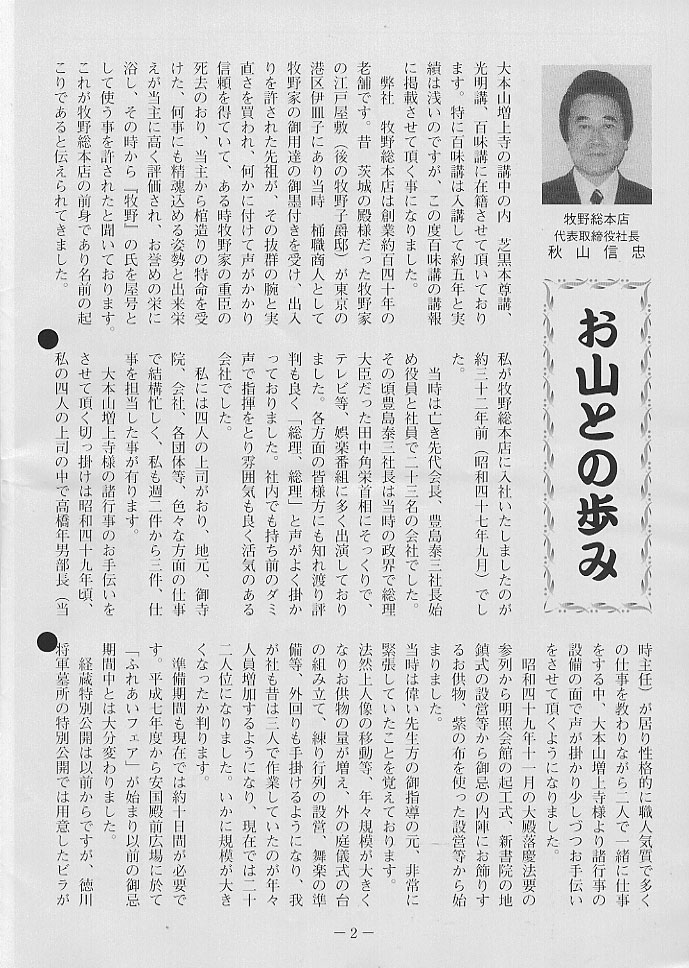 牧野総本店
代表取締役社長
秋山信忠
お山との歩み
大本山増上寺の講中の内　芝黒本尊講、
光明講、百味講に在籍させて頂いており
ます。特に百味講は入講して約五年と実
績は浅いのですが、この度百味講の講報
に掲載させて頂く事になりました。
弊社　牧野総本店は創業約百四十年の
老舗です。昔　茨城の殿様だった牧野家
の江戸屋敷（後の牧野子爵邸）が東京の
港区伊皿子にあり当時　桶職商人として
牧野家の御用達の御墨付きを受け、出入
りを許された先祖が、その抜群の腕と実
直さを買われ、何かに付けて声がかかり
信頼を得ていて、ある時牧野家の重臣の
死去のおり、当主から棺造りの特命を受
けた、何事にも精魂込める姿勢と出来栄
えが当主に高く評価され、お誉めの栄に
浴し、その時から『牧野』の氏を屋号と
して使う事を許されたと聞いております。
これが牧野総本店の前身であり名前の起
こりであると伝えられてきました。
私が牧野総本店に入社いたしましたのが
約三十二年前（昭和四十七年九月）でし
た。
当時は亡き先代会長、豊島泰三社長始
め役員と社員で二十三名の会社でした。
その頃豊島泰三社長は当時の政界で総理
大臣だった田中角栄首相にそっくりで、
テレビ等、娯楽番組に多く出演しており
ました。各方面の皆様方にも知れ渡り評
判も良く「総理、総理」と声がよく掛か
っておりました。社内でも持ち前のダミ
声で指揮をとり雰囲気も良く活気のある
会社でした。
私には四人の上司がおり、地元、御寺
院、会社、各団体等、色々な方面の仕事
で結構忙しく、私も週二件から三件、仕
事を担当した事が有ります。
大本山増上寺様の諸行事のお手伝いを
させて頂く切っ掛けは昭和四十九年頃、
私の四人の上司の中で高橋年男部長（当
時主任）が居り性格的に職人気質で多く
の仕事を教わりながら二人で一緒に仕事
をする中、大本山増上寺様より諸行事の
設備の面で声が掛かり少しづつお手伝い
をさせて頂くようになりました。
昭和四十九年十一月の大殿落慶法要の
参列から明照会館の起工式、新書院の地
鎮式の設営等から御忌の内陣にお飾りす
るお供物、紫の布を使った設営等から始
まりました。
当時は偉い先生方の御指導の元、非常に
緊張していたことを覚えております。
法然上人像の移動等、年々規模が大きく
なりお供物の量が増え、外の庭儀式の台
の組み立て、練り行列の設営、舞楽の準
備等、外回りも手掛けるようになり、我
が社も昔は三人で作業していたのが年々
人員増加するようになり、現在では二十
二人位になりました。いかに規模が大き
くなったか判ります。
準備期間も現在では約十日間が必要で
す。平成七年度から安国殿前広場に於て
「ふれあいフェア」が始まり以前の御忌
期間中とは大分変わりました。
経蔵特別公開は以前からですが、徳川
将軍墓所の特別公開では用意したビラが
－2－